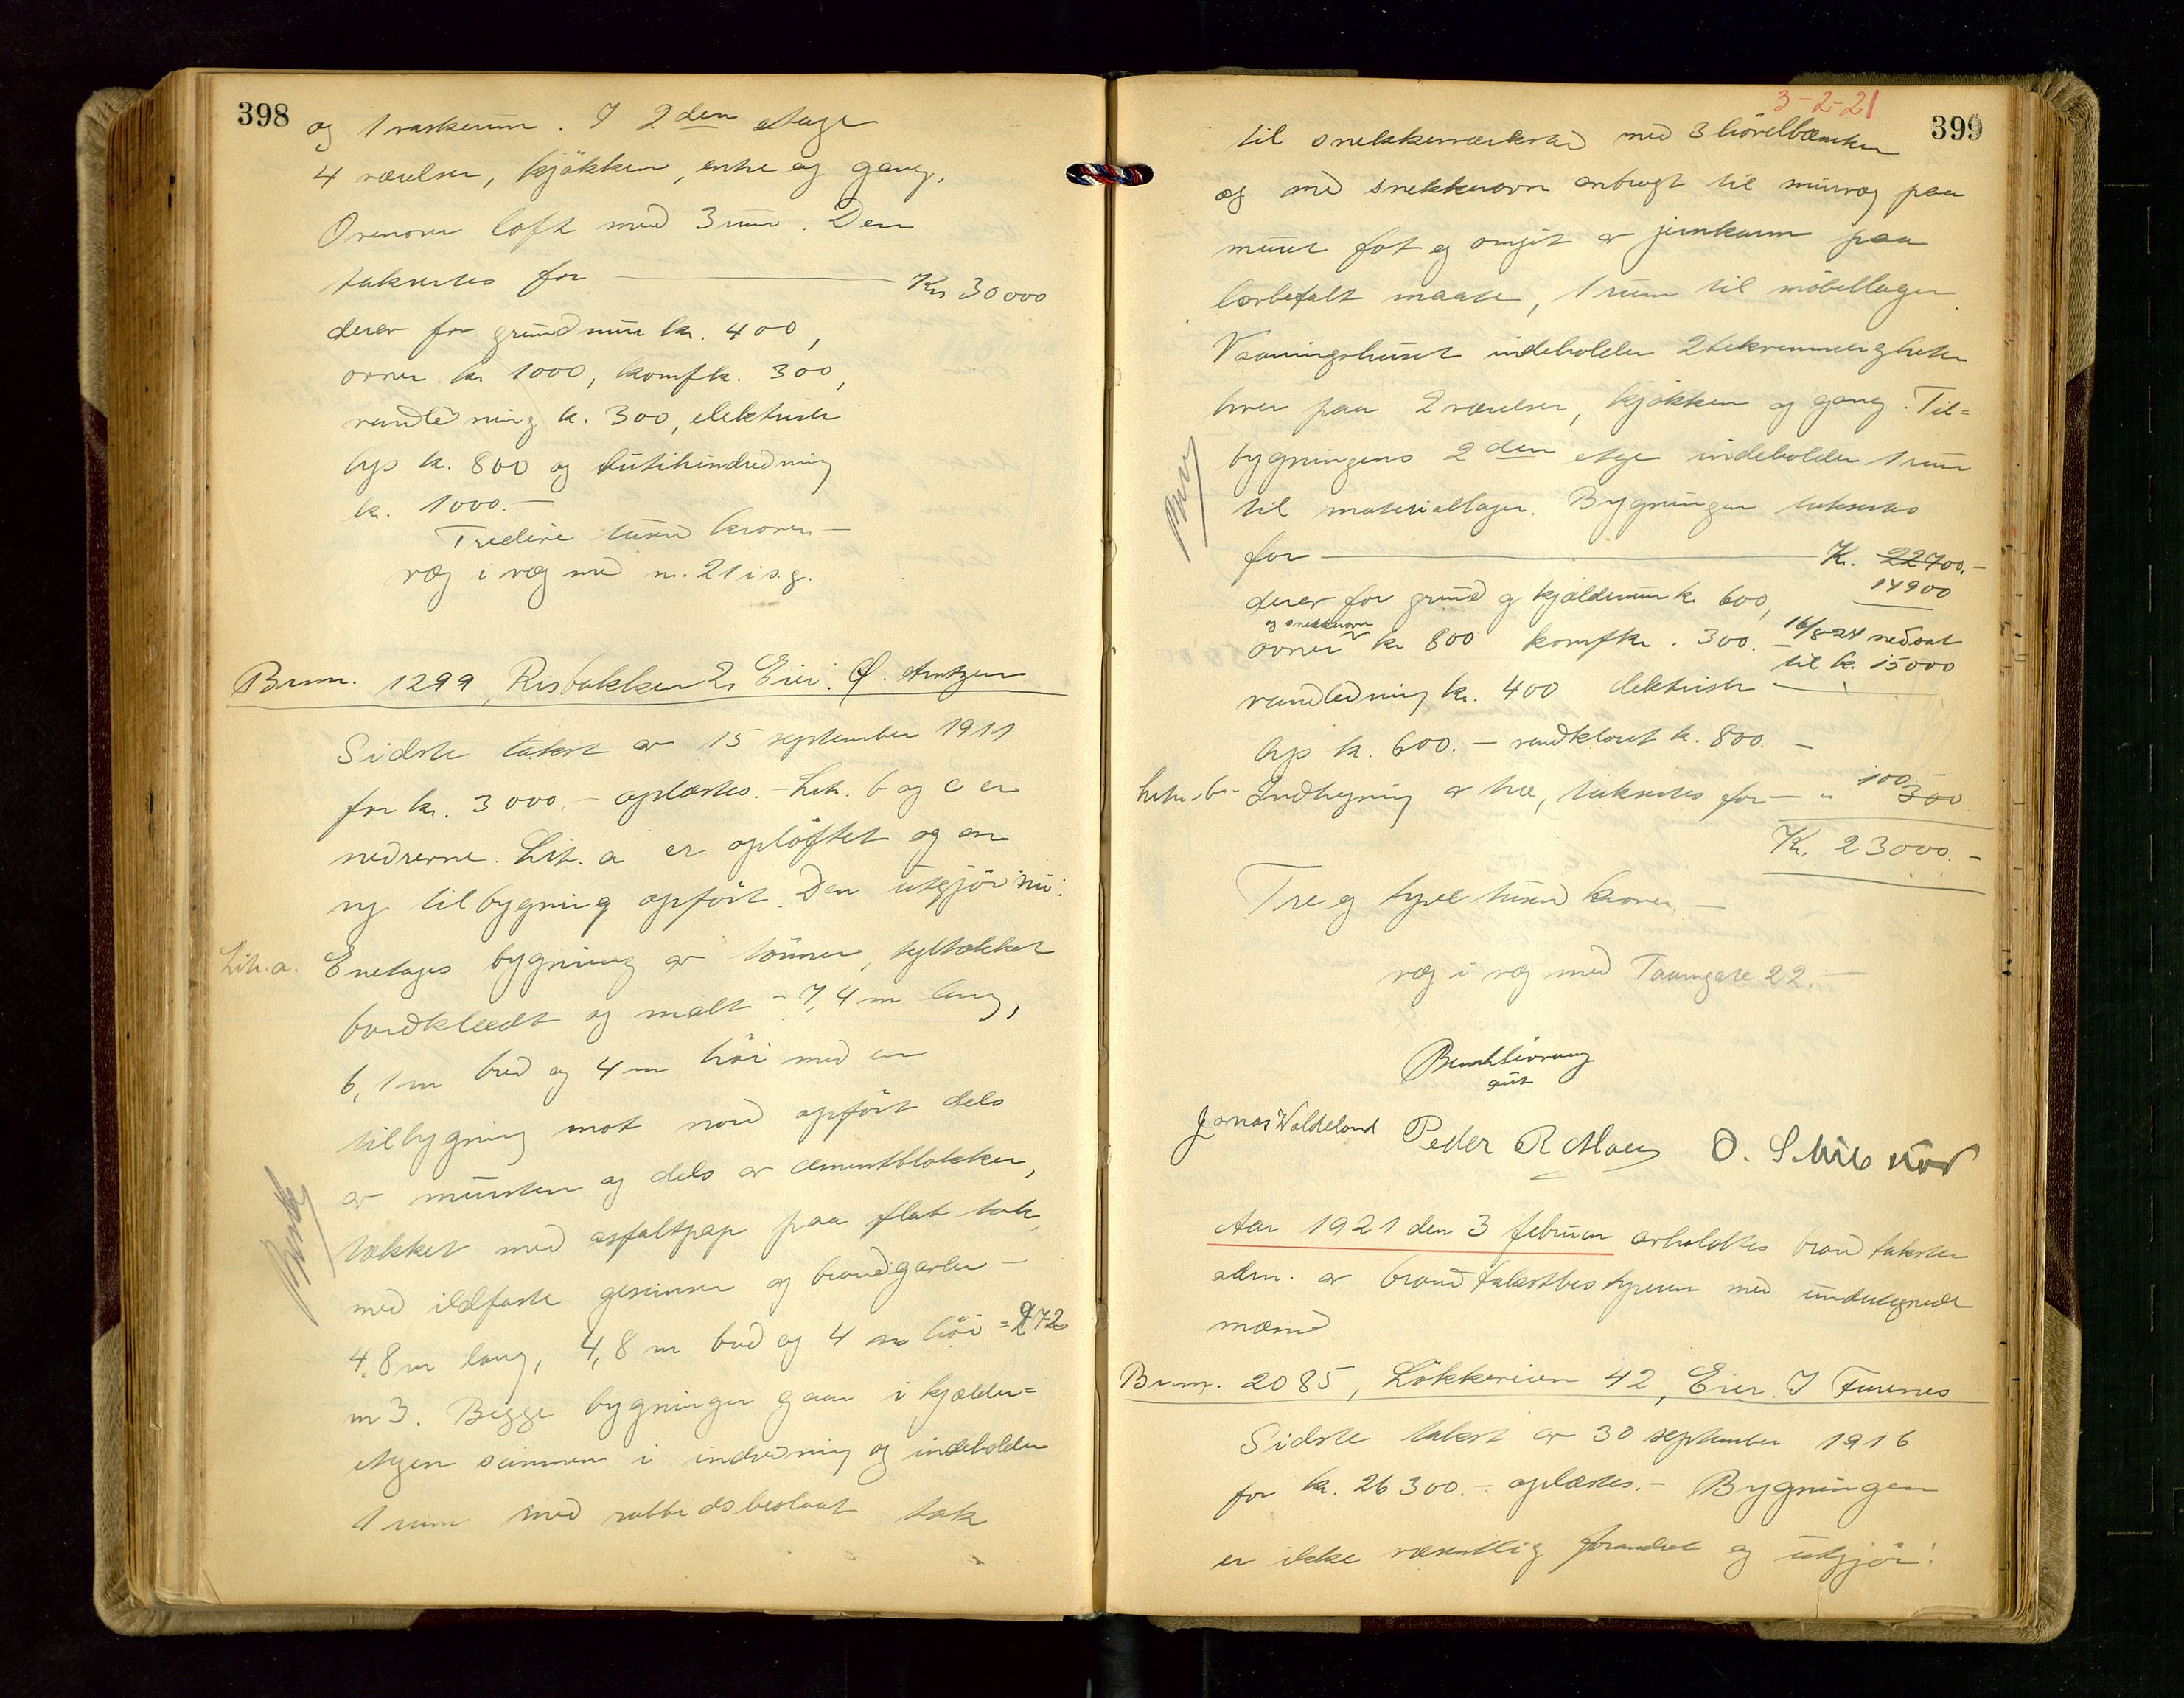 398
og 1 vaskerum. I 2den etage
4 værelser, kjökken, entre og gang,
Ovenover loft med 3 rum. Den
takseres for — Kr 30000
derav for grundmur kr. 400,
ovner kr 1000, komf kr. 300,
vandledning kr. 300, elektrisk
lys kr. 800 og butikindredning
kr. 1000.—
Tredive tusind kroner —
væg i væg med nr. 21 i s.g.
Brnm. 1299, Risbakken 2, Eier: Ø. Arntzen
Sidste takst av 15 september 1911
for kr. 3000.— oplæstes. — Litr. b og c er
nedrevne. Litr. a er oplöftet og en
ny tilbygning opfört. Den utgjör nu:
Litr. a. Enetages bygning av tömmer, tegltækket
bordklædt og malt — 7,4 m lang,
6,1 m bred og 4 m höi med en
tilbygning mot nord opfört dels
av mursten og dels av cementblokker,
tækket med asfaltpap paa flat tak
med ildfaste gesimser og brandgavler —
4,8 m lang, 4,8 m bred og 4 m höi = 272
m3. Begge bygninger gaar i kjælder=
etagen sammen i indredning og indeholder
1 rum med rabbedsbeslaat tak
3-2-21
399
til snekkerværksted med 3 hövelbænker
og med snekkerovn anbragt til murvæg paa
muret fot og omgit av jernkarm paa
lovbefalt maate, 1 rum til möbellager
Vaaningshuset indeholder 2 bekvemmeligheter
hver paa 2 værelser, kjökken og gang. Til=
bygningens 2den etage indeholder 1 rum
til materiallager. Bygningen takseres
for — Kr. 22700.—
14900
derav for grund og kjældermur kr 600,
og snekkerovn
ovner kr 800 komf kr. 300. — 16/8-24 nedsat
til kr. 15000
vandledning kr. 400 elektrisk
lys kr. 600.— vandkloset kr. 800.—
Litr. b. Indhegning av træ, takseres for — " 300
100
Kr. 23000.—
Tre og tyve tusind kroner.—
væg i væg med Taarngate 22.—
Jonas Waldeland Peder R Moen
Aar 1921 den 3 februar avholdtes brand takster
adm. av brandtakstbestyreren med undertegnede
mænd
Brnm. 2085, Lökkeveien 42, Eier. I Furenes
Sidste takst av 30 september 1916
for kr. 26300.— oplæstes.— Bygningen
er ikke væsentlig forandret og utgjör: